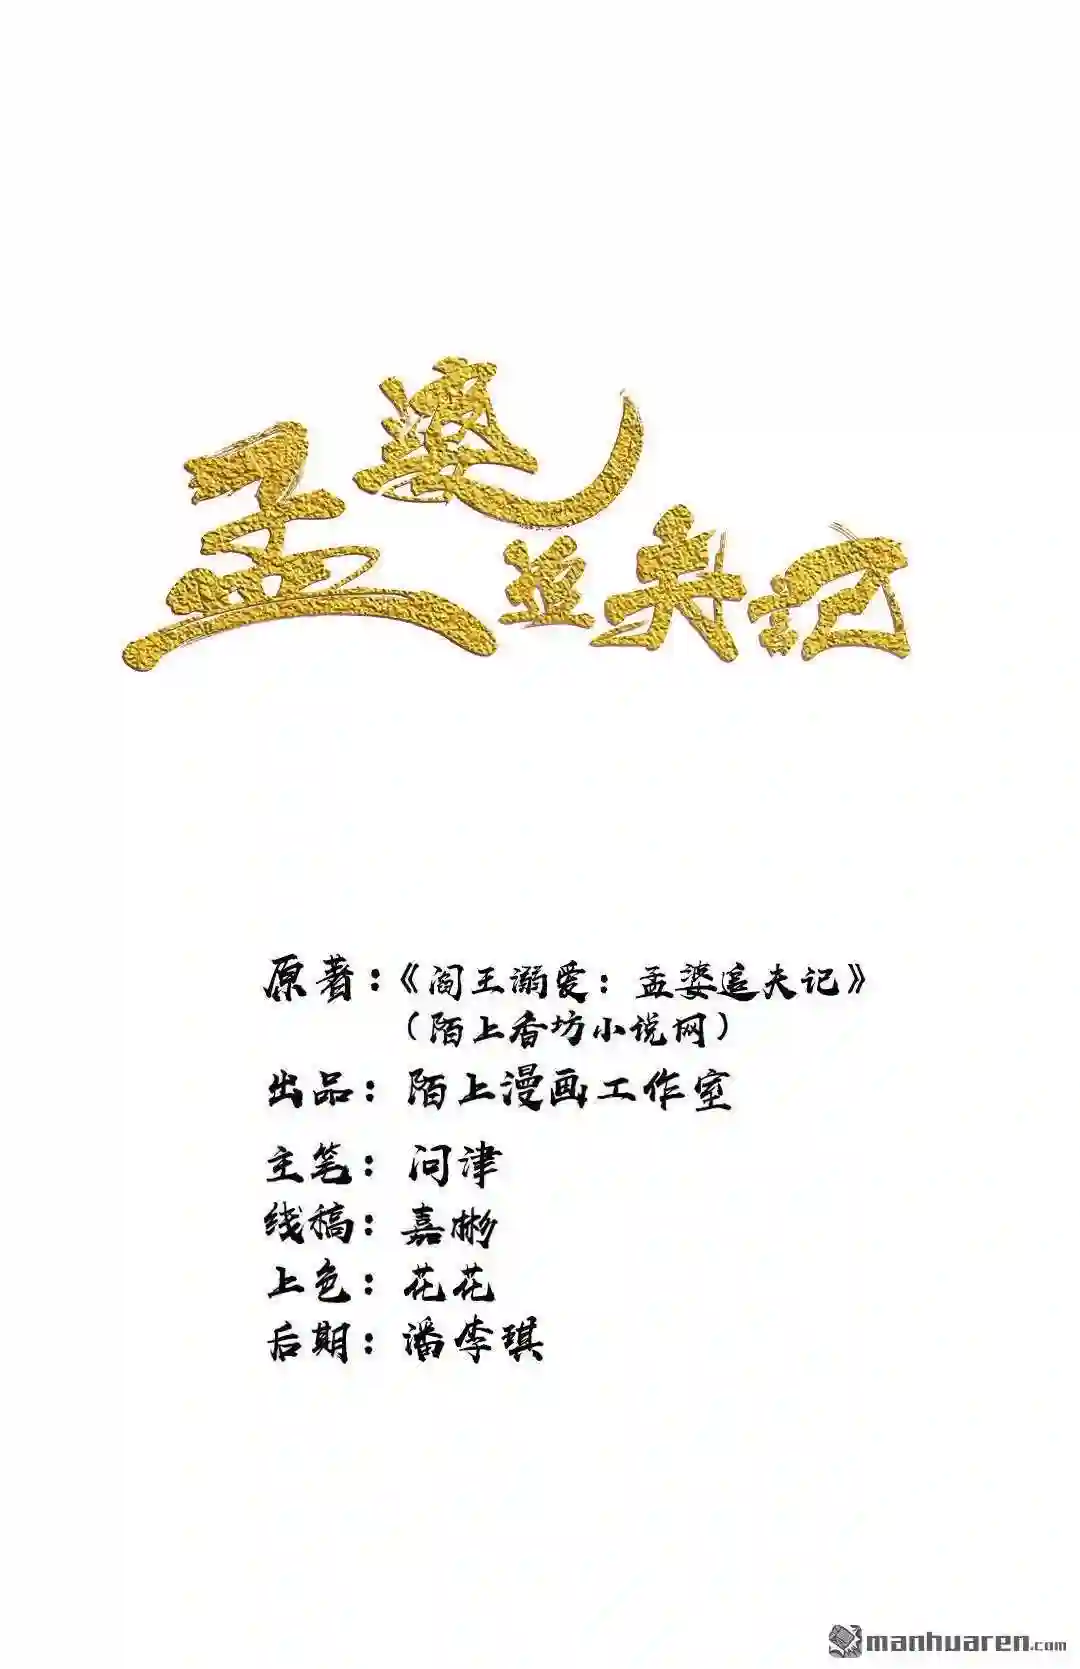 孟婆追夫记
原著：《阎王溺爱：孟婆追夫记》
（陌上香坊小说网）
出品：陌上漫画工作室
主笔：问津
线稿：嘉彬
上色：花花
后期：潘李琪
manhuaren.com